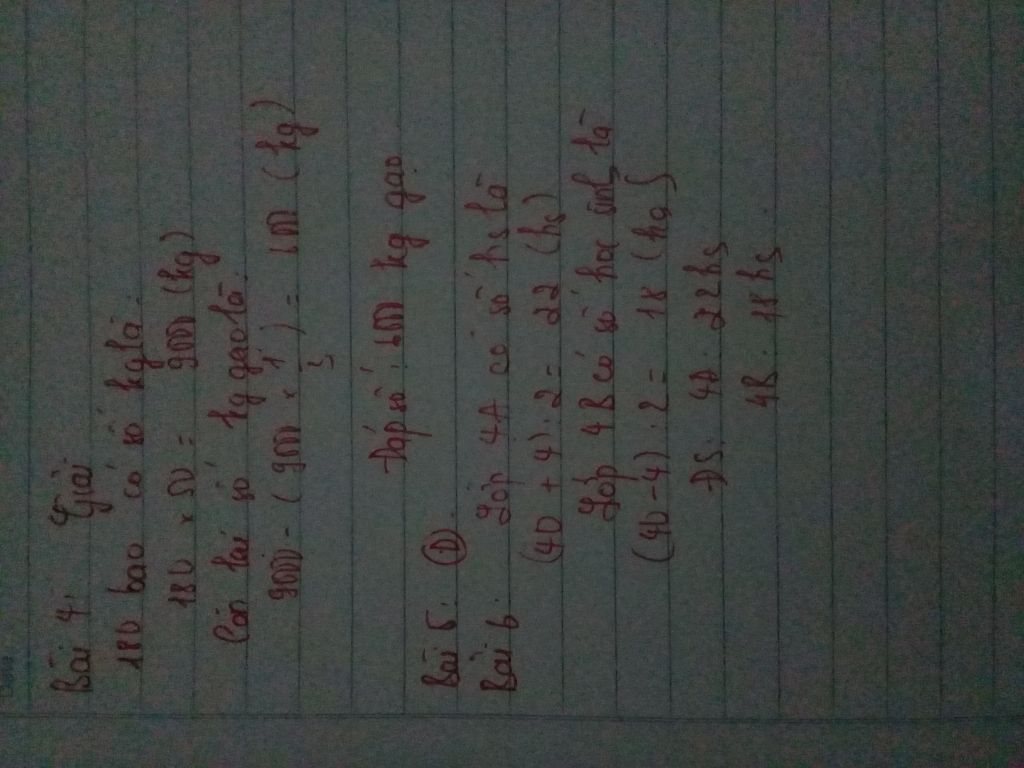 Bài 4. Giải
180 bao có số kg là.
180 × 50 = 9000 (kg)
Còn lại số kg gạo là.
9000 - (9000 × 1/3) = 6000 (kg)
Đáp số: 6000 kg gạo
Bài 5. D
Bài 6. Lớp 4A có số hs là
(40 + 4) : 2 = 22 (hs)
Lớp 4B có số học sinh là
(40 - 4) : 2 = 18 (hs)
ĐS. 4A. 22hs
4B. 18hs